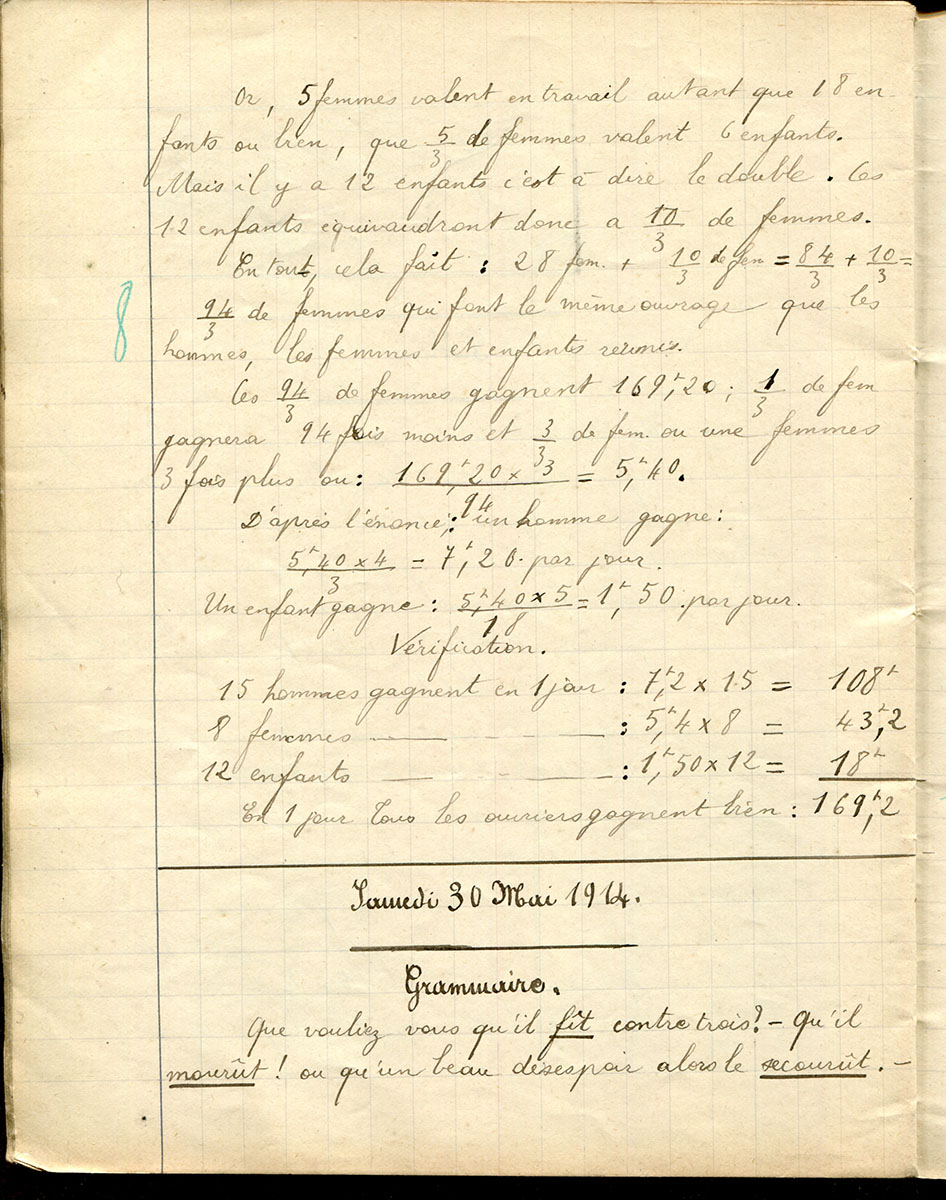 Or, 5 femmes valent en travail autant que 18 en-
fants ou bien, que 5/3 de femmes valent 6 enfants.
Mais il y a 12 enfants c'est à dire le double. Ces
12 enfants équivaudront donc a 10/3 de femmes.
En tout, cela fait : 28 fem. + 10/3 de fem = 84/3 + 10/3 =
94/3 de femmes qui font le même ouvrage que les
hommes, les femmes et enfants réunis.
8
Ces 94/3 de femmes gagnent 169f,20 ; 1/3 de fem
gagnera 94 fois moins et 3/3 de fem. ou une femmes
3 fois plus ou : 169f,20 x 3 / 94 = 5f,40.
D'après l'énoncé, : un homme gagne :
5f,40 x 4 / 3 = 7f,20 par jour.
Un enfant gagne : 5f,40 x 5 / 18 = 1f,50 par jour.
Vérification.
15 hommes gagnent en 1 jour : 7f,2 x 15 = 108f
8 femmes — — — : 5f,4 x 8 = 43f,2
12 enfants — — — : 1f,50 x 12 = 18f
En 1 jour tous les ouriers gagnent bien : 169f,2
Samedi 30 Mai 1914.
Grammaire.
Que vouliez vous qu'il fît contre trois? - Qu'il
mourût ! ou qu'un beau désespoir alors le secourût. -